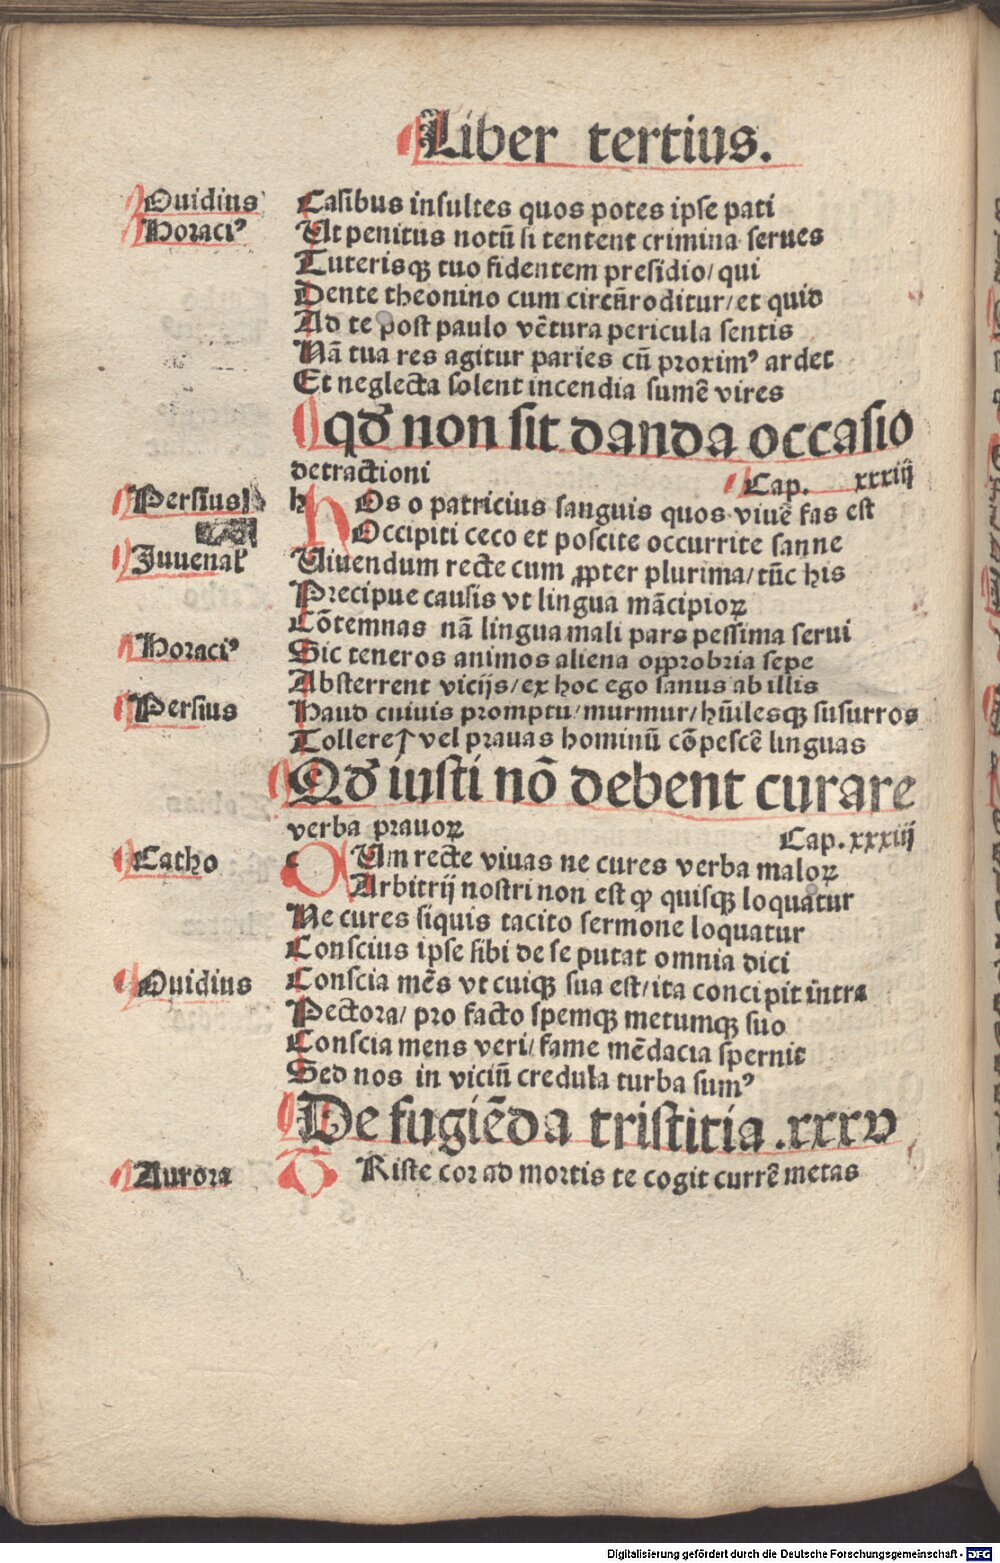 Liber tertius.
Ouidius Casibus insultes quos potes ipse pati
Horaciꝰ Ut penitus notū si tentent crimina serues
Tuterisqꝫ tuo fidentem presidio/ qui
Dente theonino cum circūroditur/ et quid
Ad te post paulo vētura pericula sentis
Nā tua res agitur paries cū proximꝰ ardet
Et neglecta solent incendia sumē vires
qđ non sit danda occasio
detractioni Cap. xxxiij
Persius h Os o patricius sanguis quos viuē fas est
Occipiti ceco et poscite occurrite sanne
Juuenal' Uiuendum recte cum ꝓpter plurima/ tūc his
Precipue causis vt lingua mācipioꝝ
Cōtemnas nā lingua mali pars pessima serui
Horaciꝰ Sic teneros animos aliena opprobria sepe
Absterrent vicijs/ ex hoc ego sanus ab illis
Persius Haud cuiuis promptu/ murmur/ hūilesqꝫ susurros
Tollere/ vel prauas hominū cōpescē linguas
Qđ iusti nō debent curare
verba prauoꝝ Cap. xxxiiij
Catho c Um recte viuas ne cures verba maloꝝ
Arbitrij nostri non est qͦ quisqꝫ loquatur
Ne cures siquis tacito sermone loquatur
Conscius ipse sibi de se putat omnia dici
Ouidius Conscia mēs vt cuiqꝫ sua est/ ita concipit intra
Pectora/ pro facto spemqꝫ metumqꝫ suo
Conscia mens veri/ fame mēdacia spernit
Sed nos in viciū credula turba sumꝰ
De fugiēda tristitia .xxxv
Aurora T Riste cor ad mortis te cogit currē metas
Digitalisierung gefördert durch die Deutsche Forschungsgemeinschaft - DFG